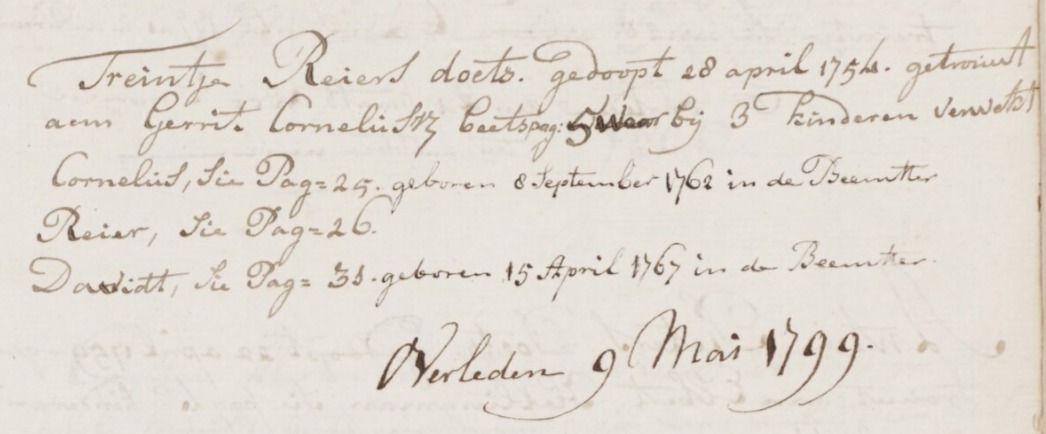 Treintje Reiers doets. gedoopt 28 april 1754. getrouwt
aan Gerrit Cornelisz beets pag: 5 waar bij 3 kinderen verwekt
Cornelis, Sie Pag= 25. geboren 8 September 1762 in de Beemster
Reier, Sie Pag= 26.
Davidt, Sie Pag= 31. geboren 15 April 1767 in de Beemster.
Overleden 9 Mai 1799.